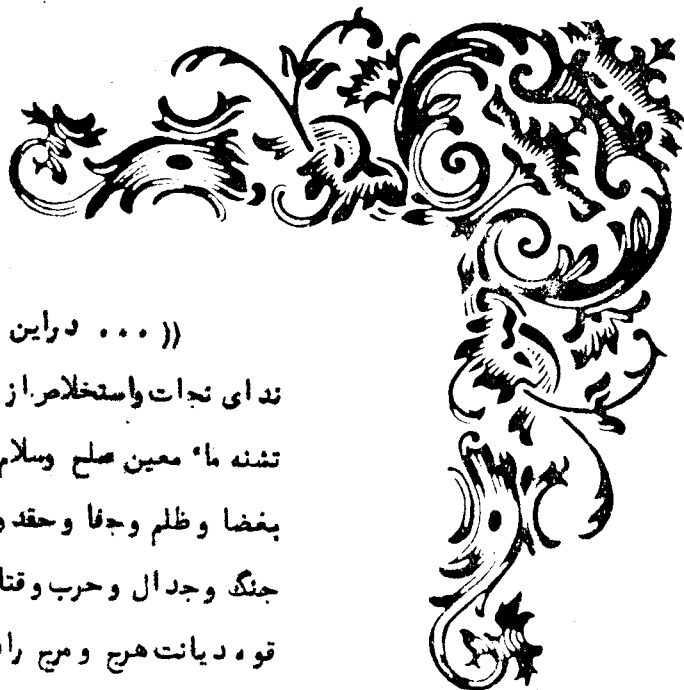 (( ... دراین
ندای نجات واستخلاص از
تشنه ماء معین صلح وسلام
بغضا وظلم وجفا وحقد و
جنگ وجدال وحرب وقتا
قوه دیانت هرج ومرج را